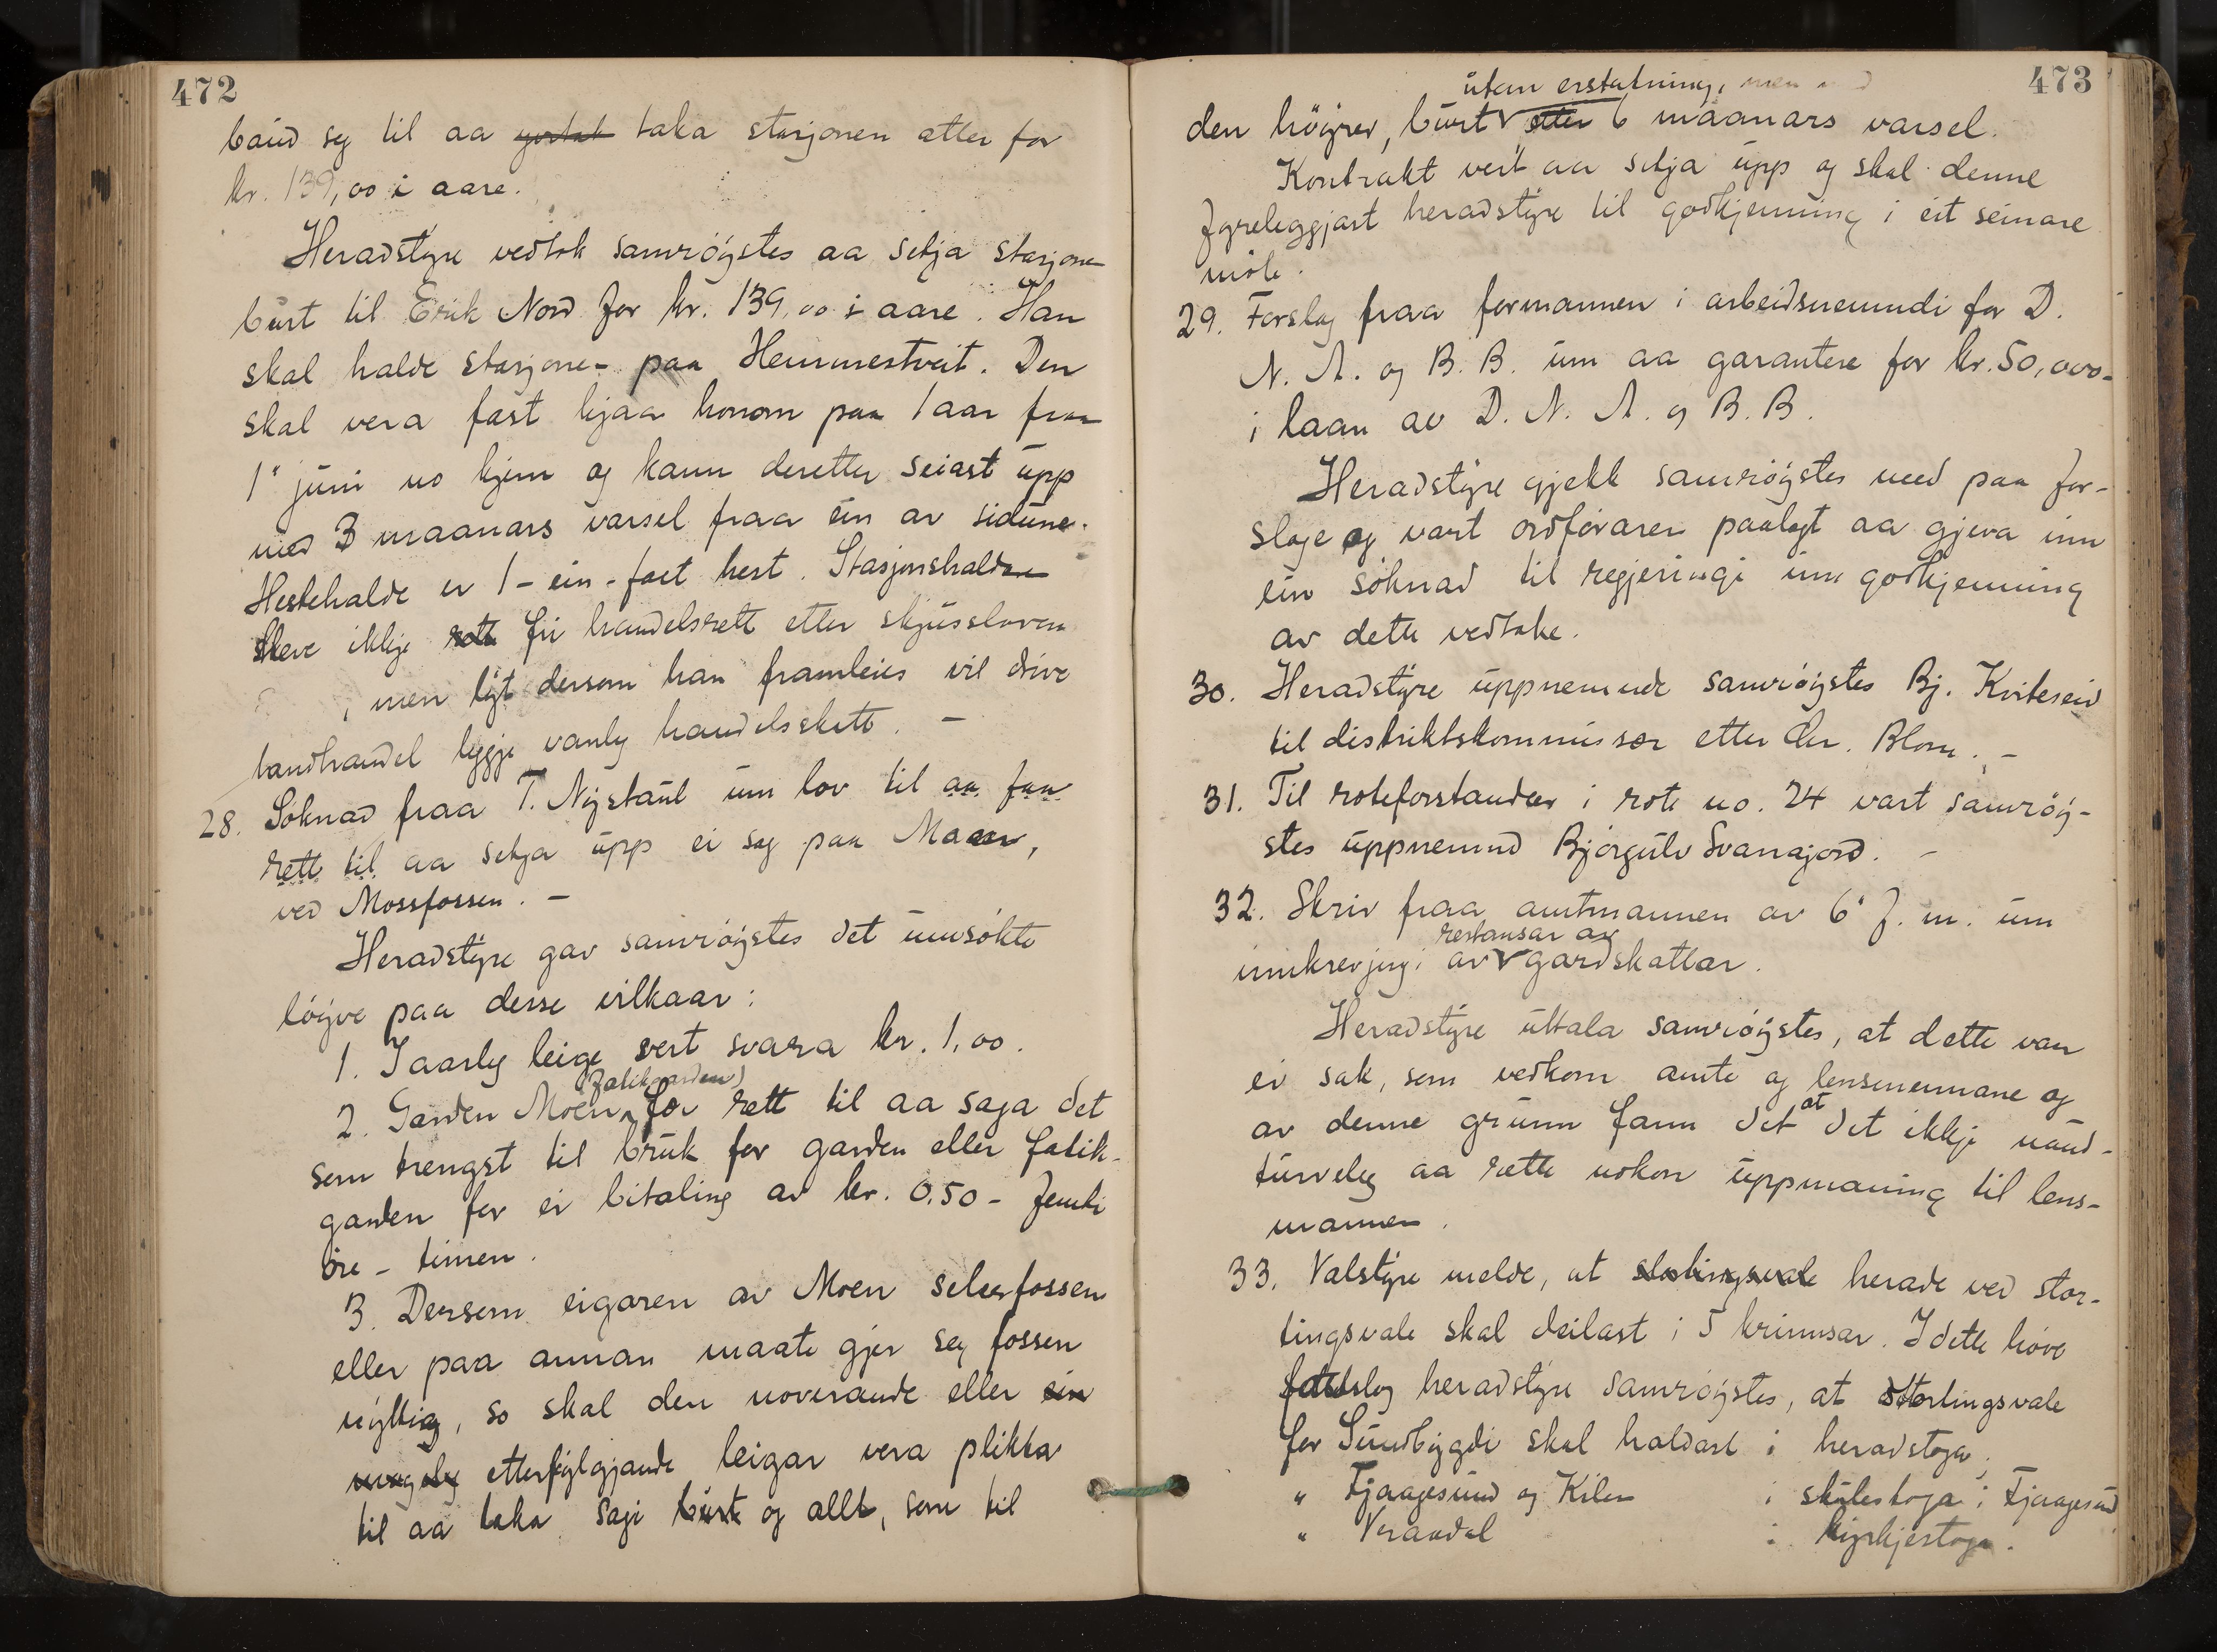 472
baud seg til aa taka stasjonen atter for
kr. 139,00 i aare.
Heradstyre vedtok samröystes aa setja stasjone
burt til Erik Nord for kr. 139,00 i aare. Han
skal halde stasjone- paa Hemmestveit. Den
skal vera fast hjaa honom paa 1 aar fraa
1' juni no kjem og kann deretter seiast upp
med 3 maanars varsel fraa ein av sidune.
Hestehalde er 1 - ein - fast hest. Stasjonshaldre
ikkje fri handelsrett etter skjussloven
, men lyt dersom han framleies vil drive
landhandel lyggje vanleg handelsskatt. -
28. Söknad fraa T. Nystaul um lov til aa faa
rett til aa setja upp ei sag paa Moen,
ved Mossfossen. -
Heradstyre gav samröystes det umsökte
löyve paa desse vilkaar:
1. I aarleg leige vert svara kr. 1,00.
(fatikgarden)
2. Garden Moen fær rett til aa saga det
som trengst til bruk for garden eller fatik-
garden for ei bitaling av kr. 0.50 - femti
öre - timen.
3. Dersom eigaren av Moen seler fossen
eller paa annan maate gjer seg fossen
nyttig, so skal den noverande eller ein
mogeleg etterfylgjande leigar vera plikta
til aa taka sagi burt og allt, som til
473
utan erstatning, men med
den höyrer, burt etter 6 maanars varsel.
Kontrakt vert aa setja upp og skal denne
fyreleggjast heradstyre til godkjenning i eit seinare
möte.
29. Forslag fraa formannen i arbeidsnemndi for D.
N. A. og B. B. um aa garantere for kr. 50,000-
i laan av D. N. A. og B. B.
Heradstyre gjekk samröystes med paa for-
slage og vart ordförarer paalagt aa gjeva inn
ein söknad til regjeringi um godkjenning
av dette vedtake.
30. Heradstyre uppnemnde samröystes Bj. Kviteseid
til distriktskommissær etter Chr. Blom. -
31. Til roteforstandar i rote no. 24 vart samröy-
stes uppnemnd Björgulv Svanajord. -
32. Skriv fraa amtmannen av 6' f. m. um
restansar av
innkrevjingi av gardskattar.
Heradstyre uttala samröystes, at dette var
ei sak, som vedkom amte og lensmennane og
av denne grunn fann det at det ikkje naud-
turveleg aa rette nokon uppmaning til lens-
mannen.
33. Valstyre melde, at stortingsvale herade ved stor-
tingsvale skal deilast i 5 krinsar. I dette höve
heradstyre samröystes, at stortingsvale
for Sundbygdi skal haldast i heradstoga,
" Fjaagesund og Kilen i skulestoga i Fjaagesund
" Vraadal i kyrkjestoga.